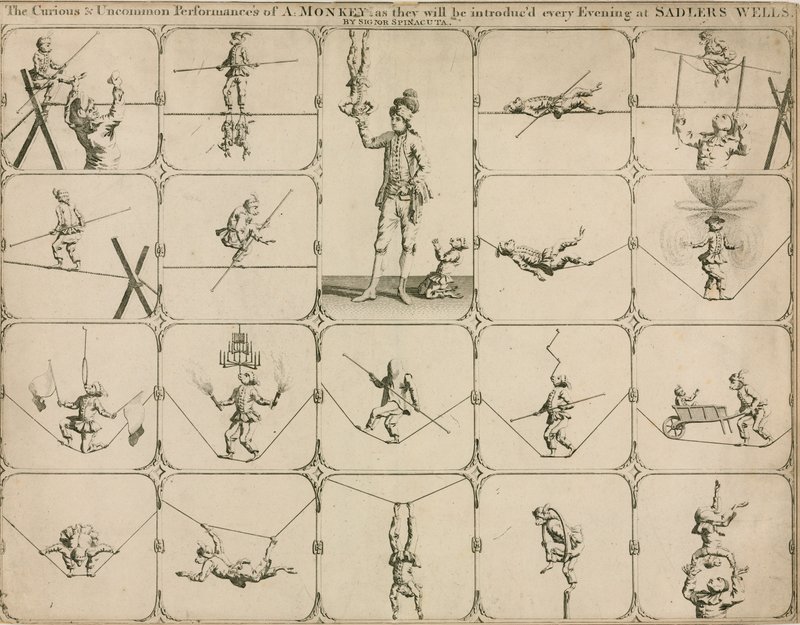 The Curious & Uncommon Performances of A. MONKEY as they will be introduc'd every Evening at SADLERS WELLS.
BY SIGNOR SPINACUTA.